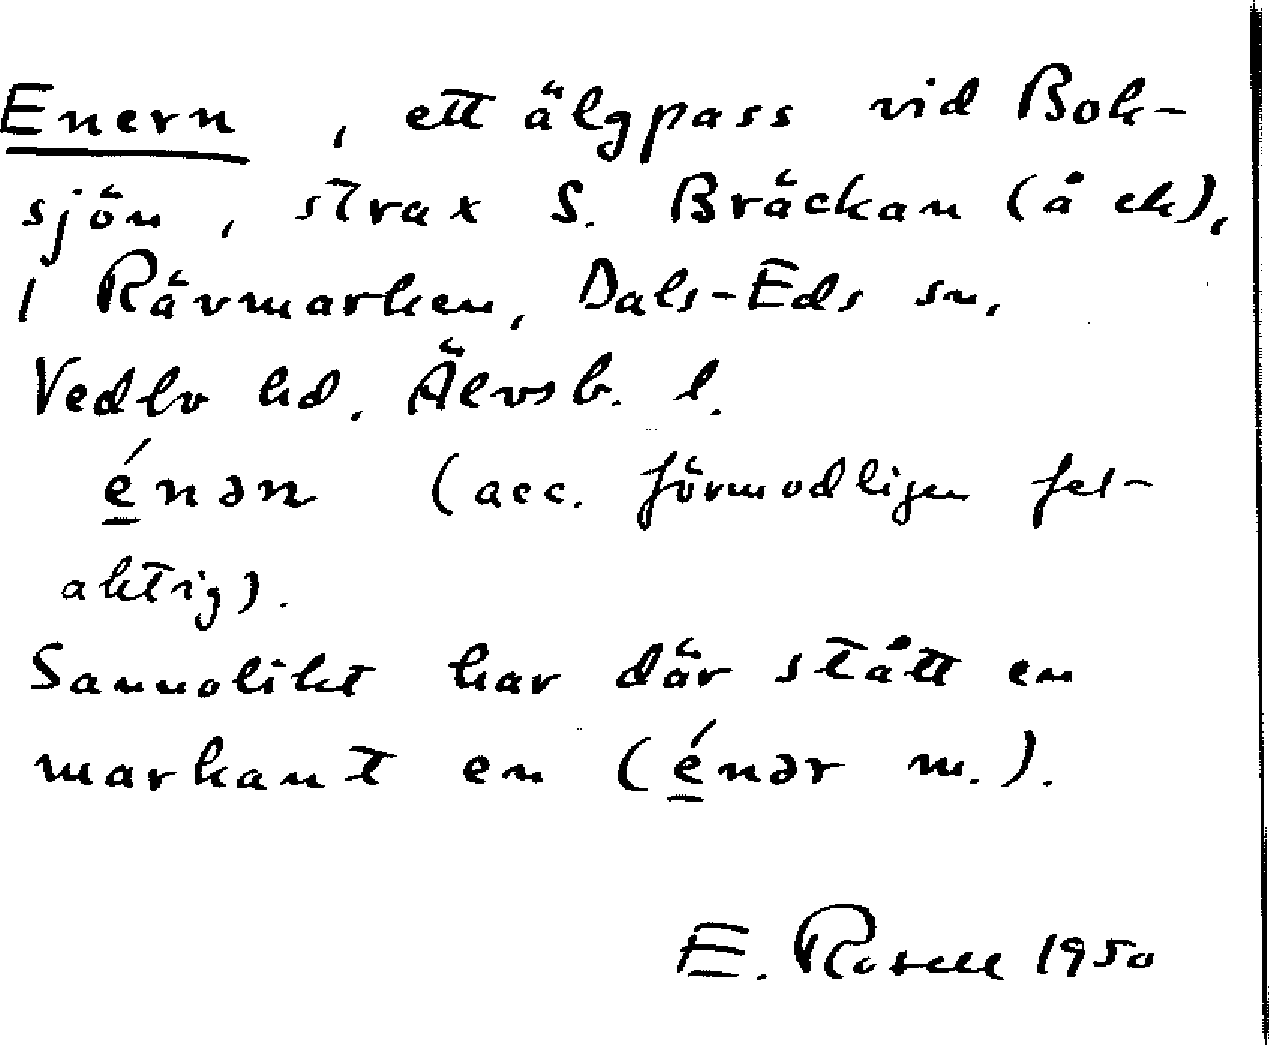 Enern, ett älgpass vid Bok-
sjön, strax S. Bräckan (å ek),
i Rävmarken, Dals-Eds sn,
Vedbo hd. Älvsb. l.
énən (acc. förmodligen fel-
aktig).
Sannolikt har där stått en
markant en (énər m.).
E. Rosell 1950